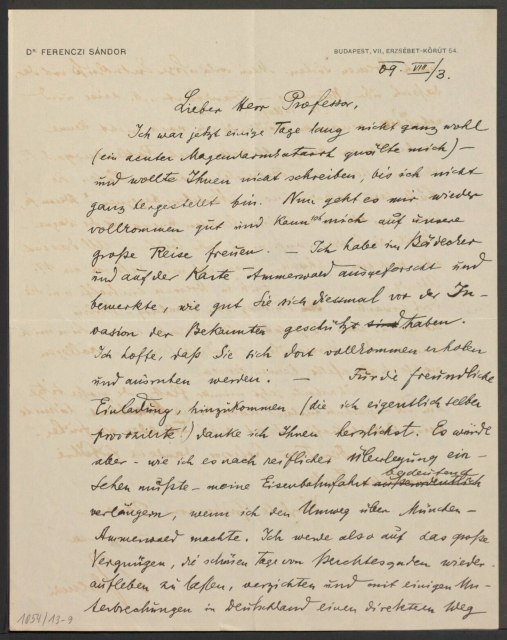 Dr. FERENCZI SÁNDOR
BUDAPEST, VII., ERZSÉBET-KÖRÚT 54.
09. VIII/3.
Lieber Herr Professor,
Ich war jetzt einige Tage lang nicht ganz wohl
(ein acuter Magendarmkatarrh quälte mich) –
und wollte Ihnen nicht schreiben, bis ich nicht
ganz hergestellt bin. Nun geht es mir wieder
vollkommen gut und kann ich mich auf unsere
große Reise freuen. – Ich habe im Bädecker
und auf der Karte Ammerwald ausgeforscht und
bemerkte, wie gut Sie sich diesmal vor der In-
vasion der Bekannten geschützt sind haben.
Ich hoffe, daß Sie sich dort vollkommen erholen
und ausruhen werden. – Für die freundliche
Einladung, hinzukommen (die ich eigentlich selber
provozierte!) danke ich Ihnen herzlichst. Es würde
aber – wie ich es nach reiflicher Überlegung ein-
sehen mußte – meine Eisenbahnfahrt außerordentlich bedeutend
verlängern, wenn ich den Umweg über München–
Ammerwald machte. Ich werde also auf das große
Vergnügen, die schönen Tage von Berchtesgaden wieder-
aufleben zu laßen, verzichten und mit einigen Un-
terbrechungen in Deutschland einen direkten Weg
1054/13-9